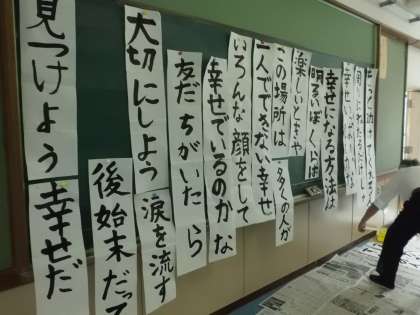 幸せになる方法は
楽しいときや
この場所は
多くの人が
一人でできない幸せ
いろんな顔をして
幸せでいるのかな
友だちがいたら
大切にしよう
涙を流す
後始末だって
見つけよう
幸せだ